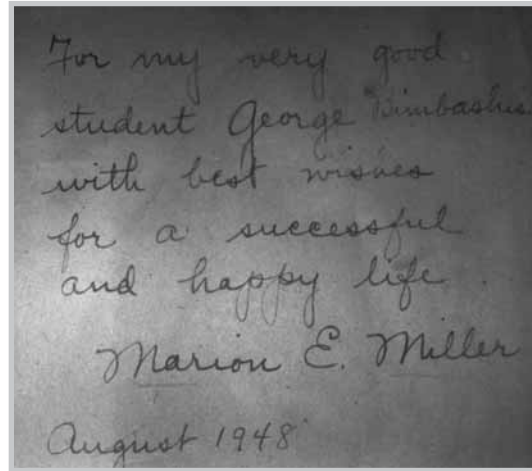 For my very good
student George
with best wishes
for a successful
and happy life.
Marion E. Miller
August 1948